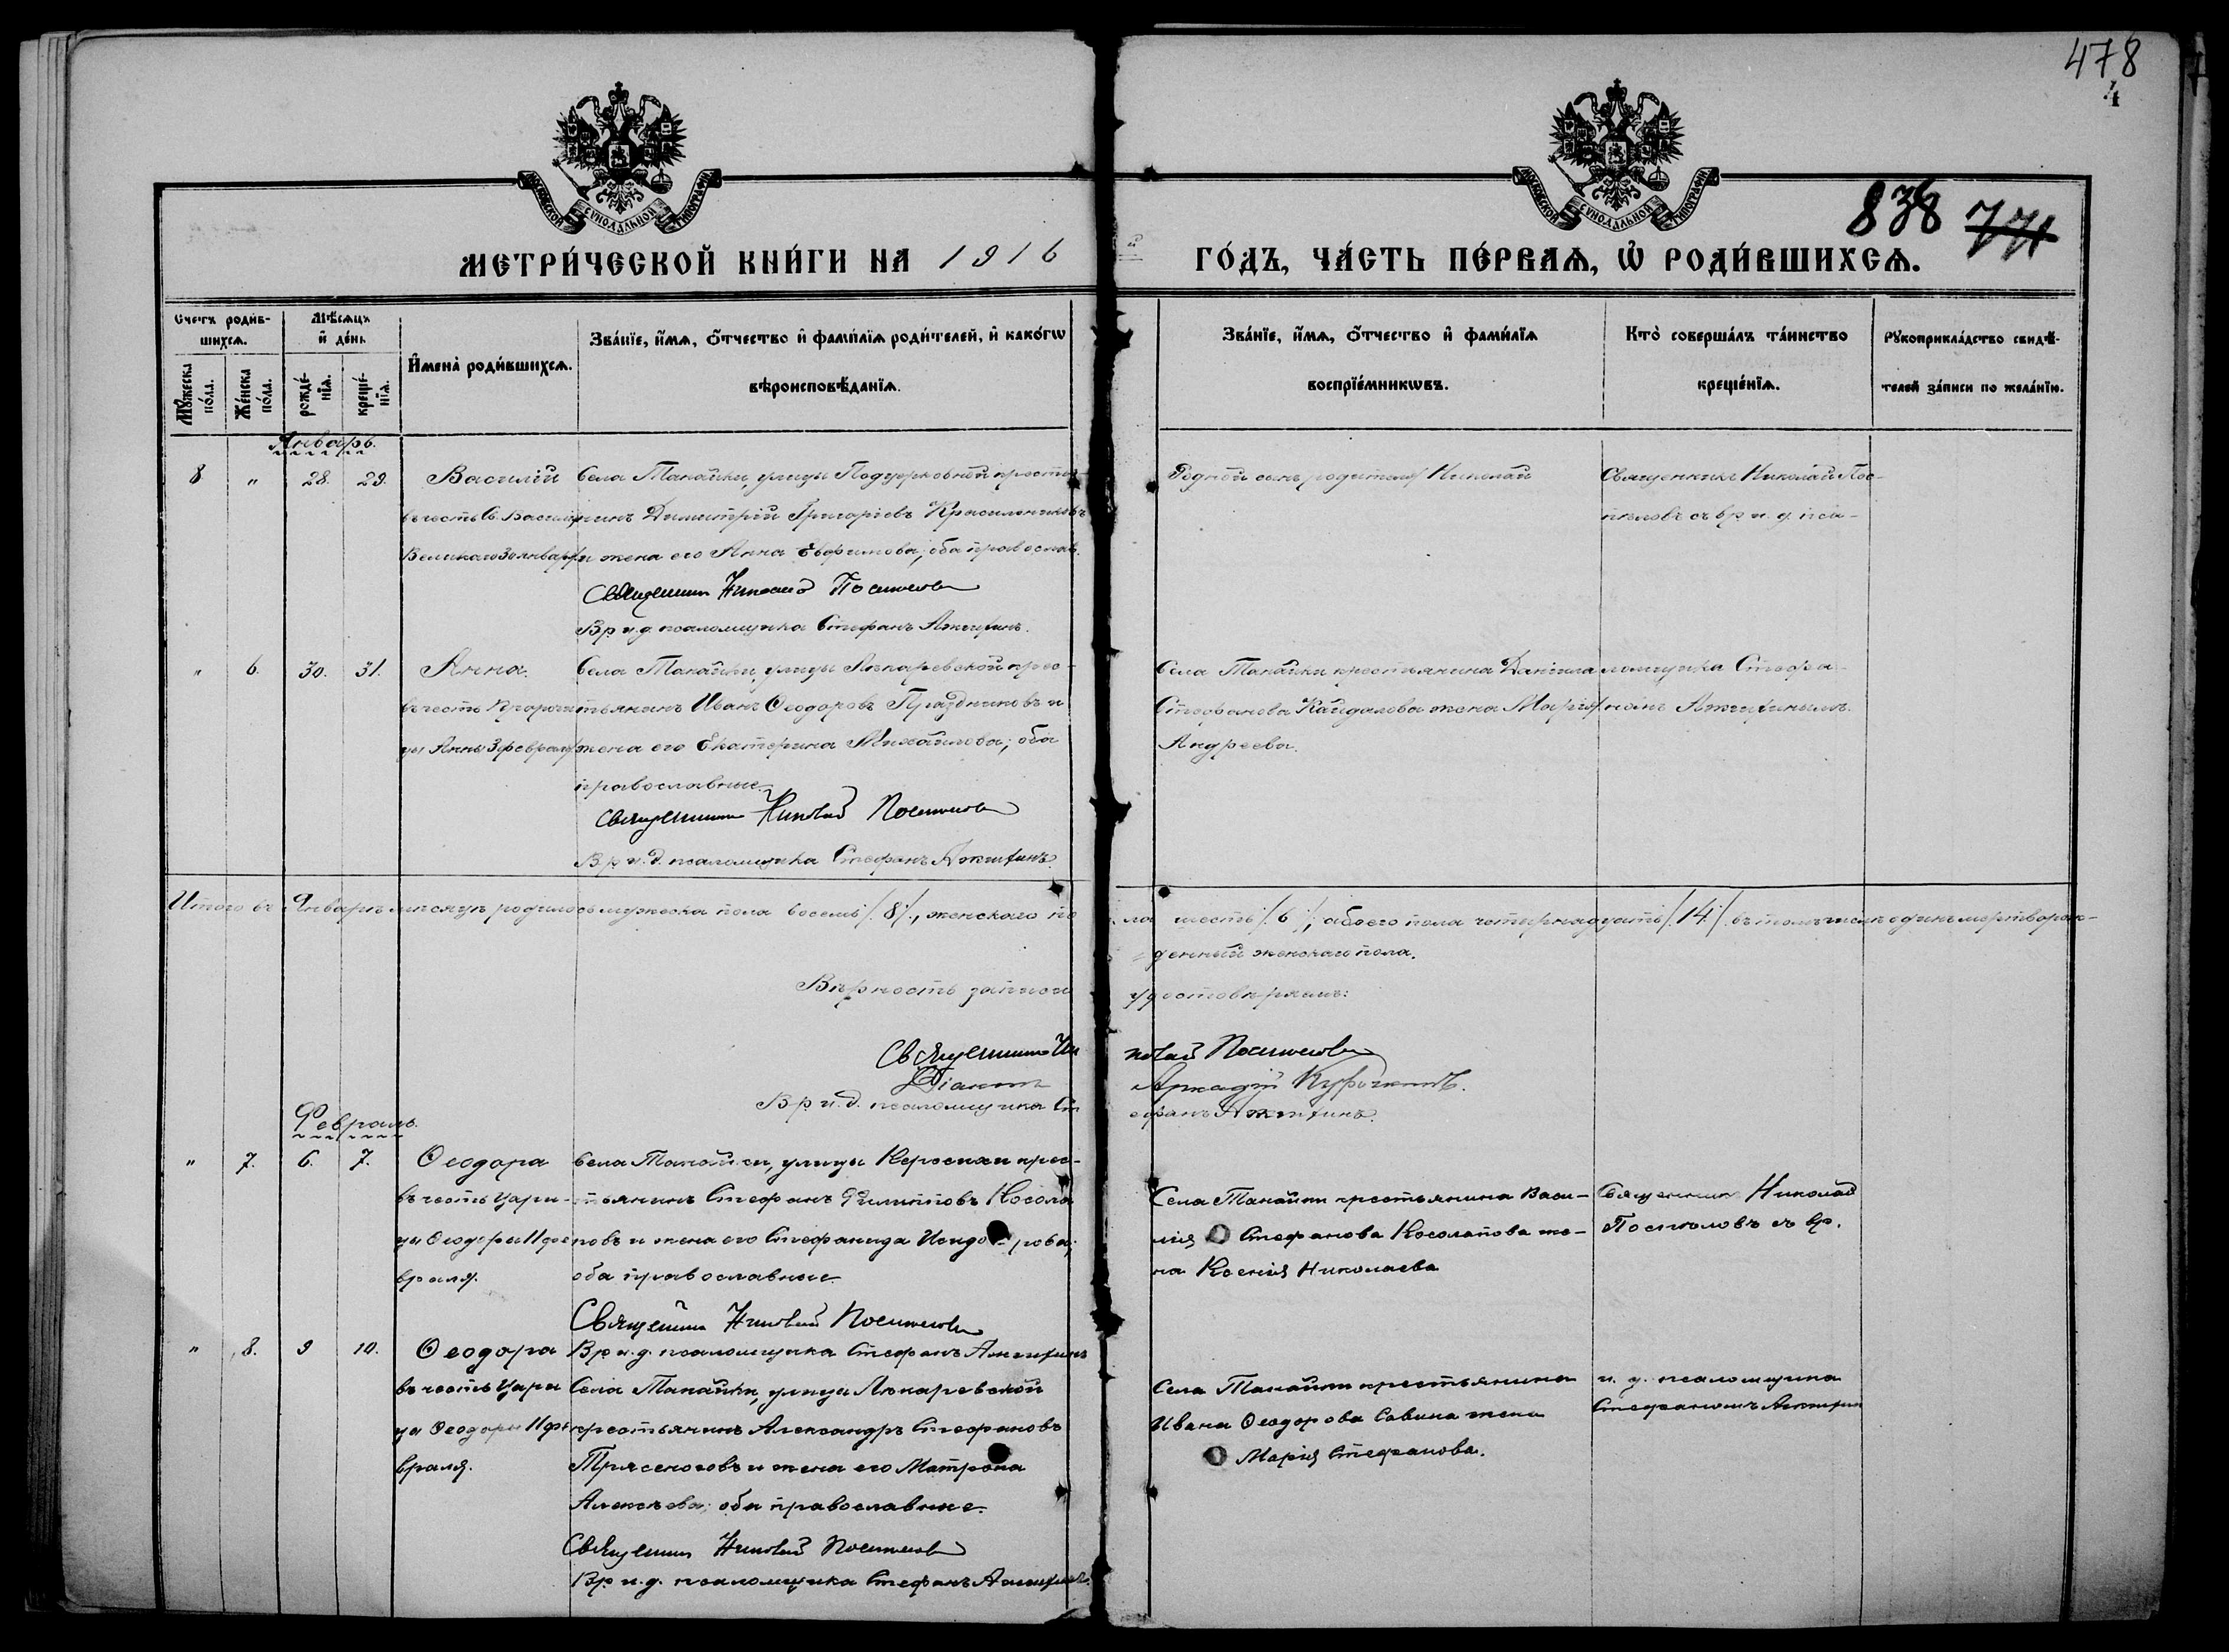 478
4
МОСКОВСКОЙ СѴНОДАЛЬНОЙ ТИПОГРАФІИ
МОСКОВСКОЙ СѴНОДАЛЬНОЙ ТИПОГРАФІИ
838 771
МЕТРИ́ЧЕСКОЙ КНИ́ГИ НА 1916 ГО́ДЪ, ЧА́СТЬ ПЕ́РВАѦ, Ѡ҆ РОДИ́ВШИХСѦ.
Счетъ роди́в-
шихсѧ.
Мꙋ́жеска по́ла.
Же́нска по́ла.
Мѣ́сѧцъ
и҆ де́нь
рожде́-нїѧ.
креще́-нїѧ.
И҆мена̀ роди́вшихсѧ.
Зва́нїе, и҆́мѧ, ѻ҆́тчество и҆ фами́лїѧ роди́телей, и҆ како́гѡ
вѣроисповѣ́данїѧ.
Зва́нїе, и҆́мѧ, ѻ҆́тчество и҆ фами́лїѧ
воспрїе́мникѡвъ.
Кто̀ соверша́лъ та́инство
креще́нїѧ.
Рꙋкоприкла́дство свидѣ́-
телей за́писи по жела́нїю.
Январь.
8 " 28. 29. Василій
въ честь Св. Василія
Великаго 30 января
Села Танайки, улицы Подцерковной крестья-
нинъ Димитрій Григоріевъ Красильниковъ
и жена его Анна Евфимова; оба православ.
Священникъ Николай Поспеловъ
Вр. и. д. псаломщика Стефанъ Ажгихинъ.
Родной сынъ родителя Николай
Священникъ Николай Пос-
пеловъ съ вр. и. д. пса-
" 6. 30. 31. Анна.
въ честь Пророчи
цы Анны 3 февраля
Села Танайки, улицы крес-
тьянинъ Иванъ Ѳеодоровъ Праздниковъ и
жена его Екатерина Михайлова; оба
православные.
Священникъ Николай Поспеловъ
Вр. и. д. псаломщика Стефанъ Ажгихинъ.
Села Танайки крестьянина Даніила
Стефанова Кайдалова жена Марія
Андреева.
ломщика Стефа-
номъ Ажгихинымъ.
Итого въ Январѣ мѣсяцѣ родилось мужеска пола восемь /8/, женскаго пола шесть /6/, обоего пола четырнадцать /14/ въ томъ числѣ одинъ мертворож-
денный женскаго пола.
Вѣрность записи удостовѣряемъ:
Священникъ Николай Поспеловъ
Діаконъ Аркадій Курочкинъ.
Вр. и. д. псаломщика Стефанъ Ажгихинъ.
Февраль.
" 7. 6. 7. Ѳеодора
въ честь Цари-
цы Ѳеодоры 11 фе
враля.
Села Танайки, улицы крес-
тьянинъ Стефанъ Филипповъ Косола
повъ и жена его Стефанида Исидорова;
оба православные.
Священникъ Николай Поспеловъ
Вр. и. д. псаломщика Стефанъ Ажгихинъ
Села Танайки крестьянина Васи-
лія Стефанова Косолапова же-
на Ксенія Николаева
Священникъ Николай
Поспеловъ съ вр.
" 8. 9 10. Ѳеодора
въ честь Цари
цы Ѳеодоры 11 фе
враля.
Села Танайки, улицы
крестьянинъ Александръ Стефановъ
Трясеноговъ и жена его Матрона
Алексѣева; оба православные.
Священникъ Николай Поспеловъ
Вр. и. д. псаломщика Стефанъ Ажгихинъ.
Села Танайки крестьянина
Ивана Ѳеодорова Савина жена
Марія Стефанова.
и. д. псаломщика
Стефаномъ Ажгихин